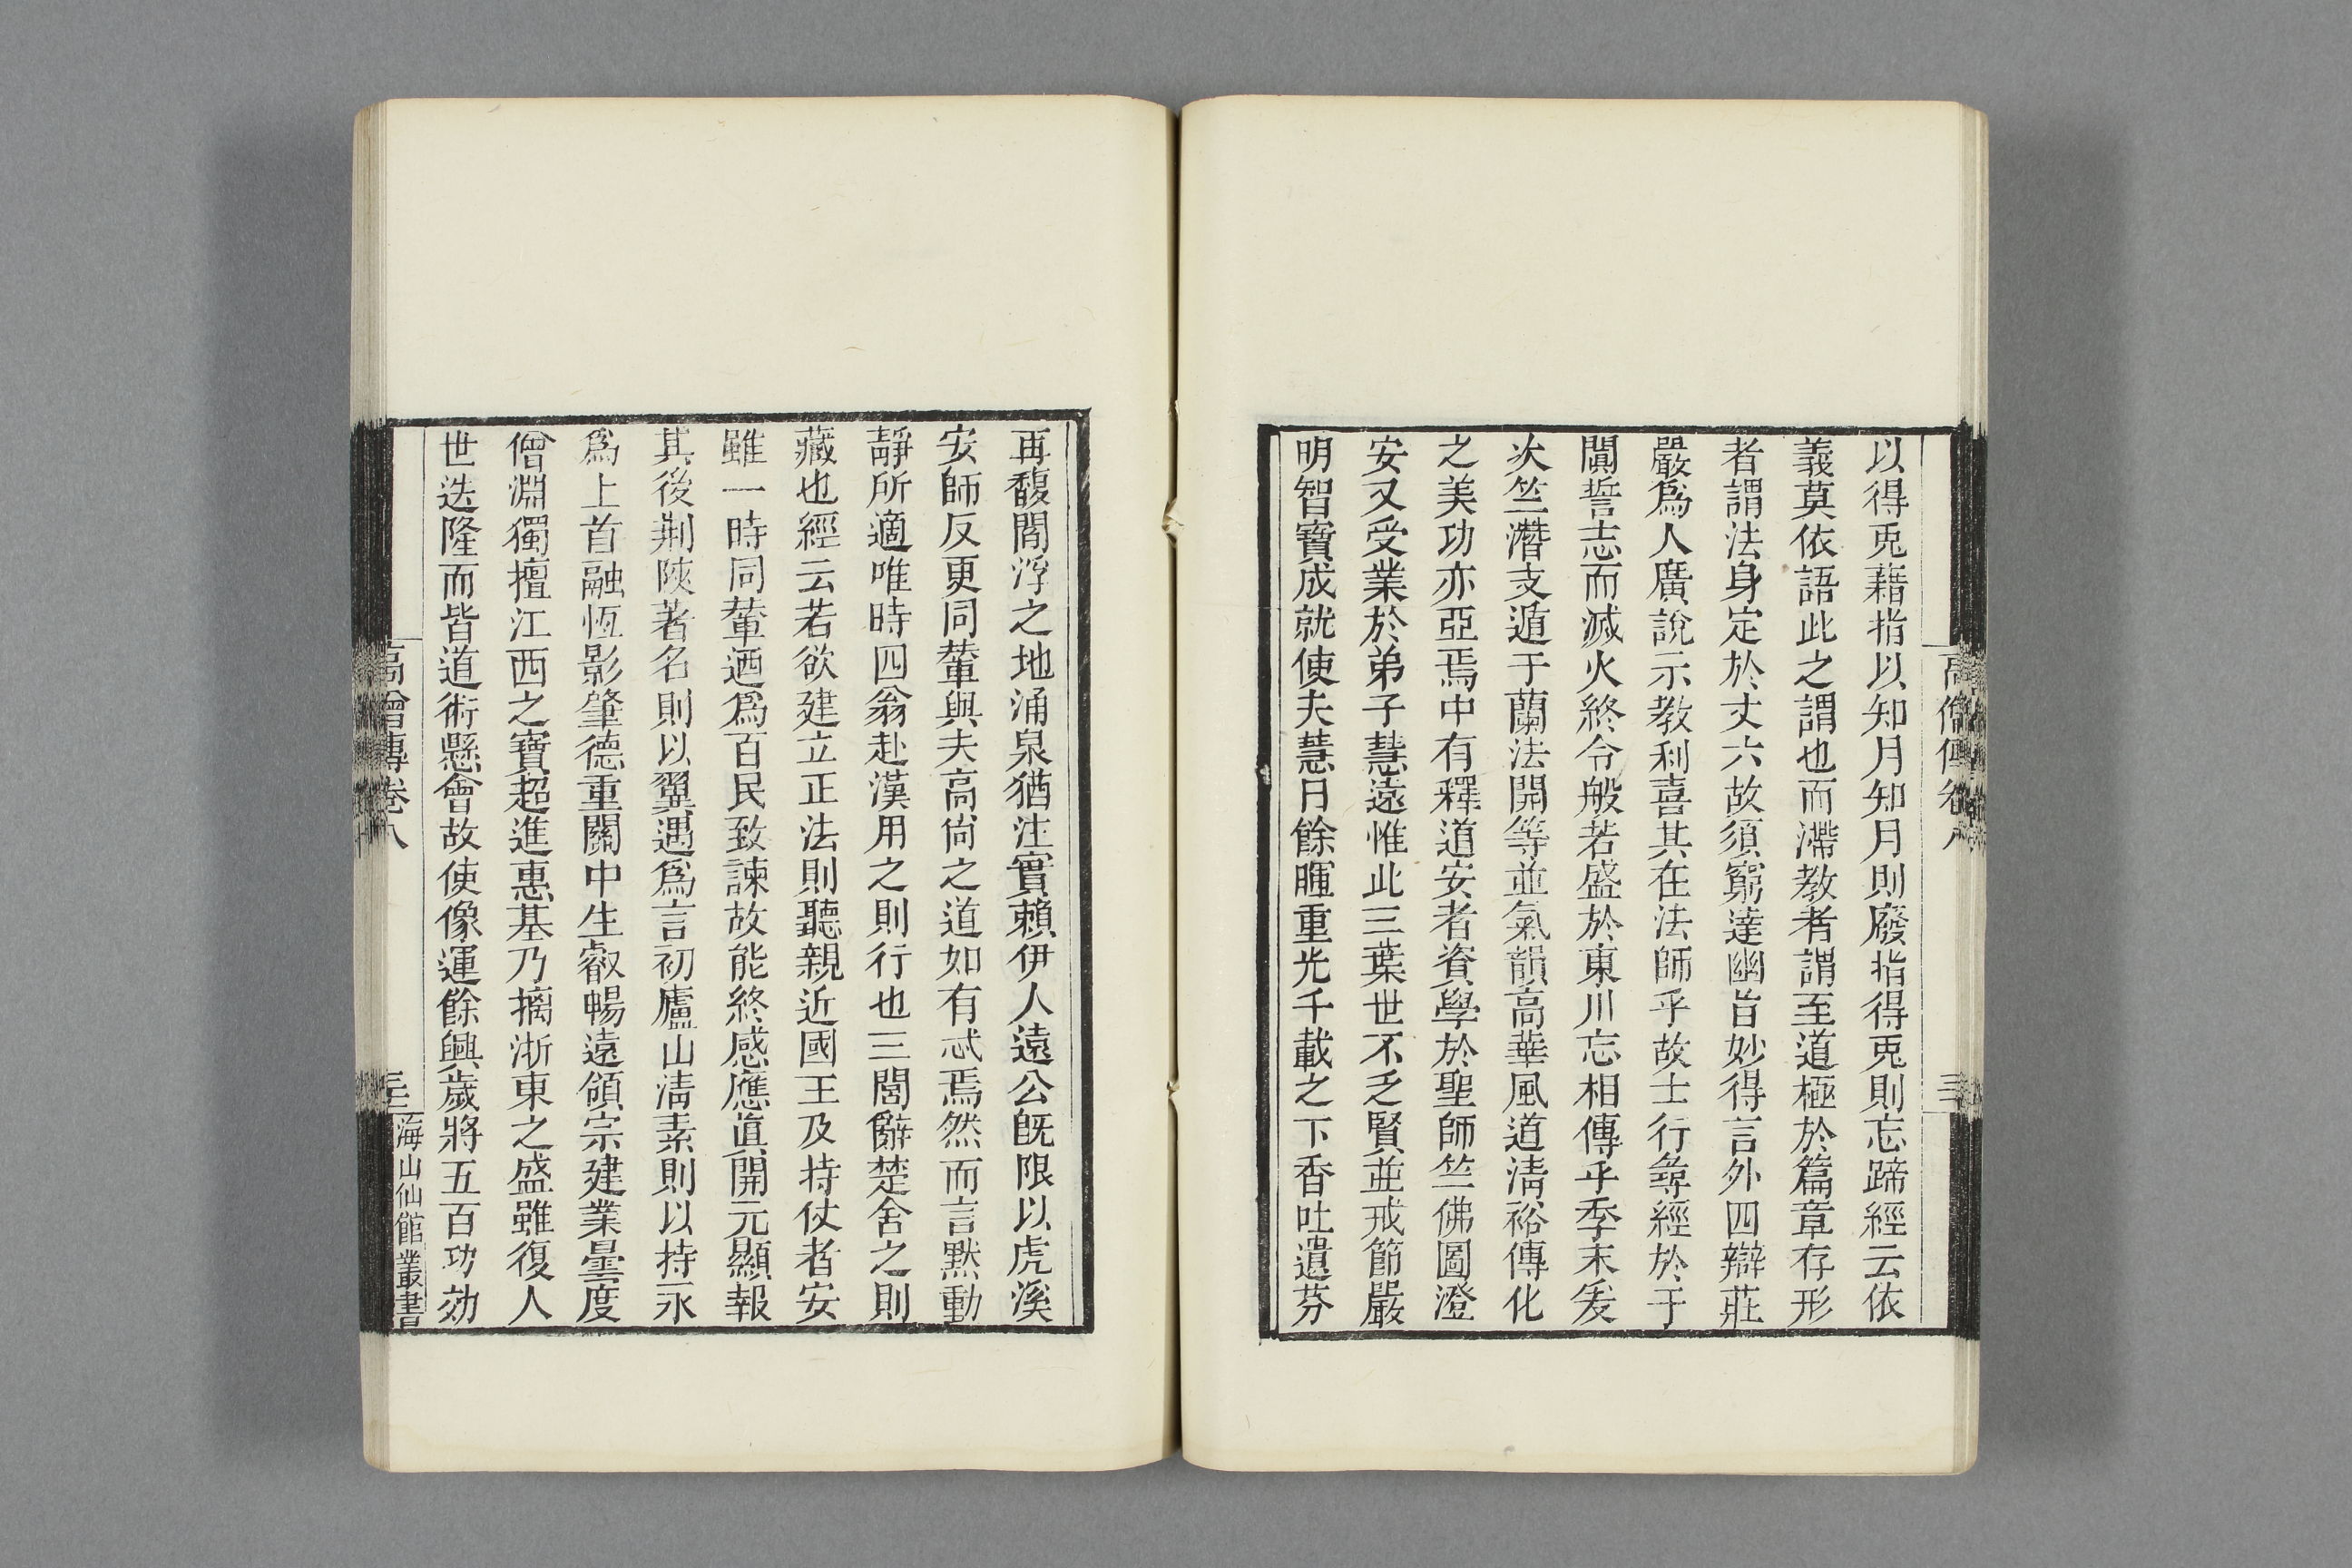 以得兎藉指以知月知月則廢指得兎則忘蹄經云依
義莫依語此之謂也而滯教者謂至道極於篇章存形
者謂法身定於丈六故須窮達幽旨妙得言外四辯莊
嚴爲人廣說示教利喜其在法師乎故士行尋經於于
闐誓志而滅火終令般若盛於東川忘相傳乎季末爰
次竺潛支遁于蘭法開等並氣韻高華風道清裕傳化
之美功亦亞焉中有釋道安者資學於聖師竺佛圖澄
安又受業於弟子慧遠惟此三葉世不乏賢並戒節嚴
明智寶成就使夫慧日餘暉重光千載之下香吐遺芬
再馥閻浮之地涌泉猶注實賴伊人遠公旣限以虎溪
安師反更同輦與夫高尙之道如有忒焉然而言默動
靜所適唯時四翁赴漢用之則行也三閭辭楚舍之則
藏也經云若欲建立正法則聽親近國王及持仗者安
雖一時同輦迺爲百民致諫故能終感應眞開元顯報
其後荆陝著名則以翼遇爲言初廬山清素則以持永
爲上首融恆影肇德重關中生叡暢遠領宗建業曇度
僧淵獨擅江西之寶超進惠基乃摛浙東之盛雖復人
世迭隆而皆道術懸會故使像運餘興歲將五百功効
高僧傳卷八
海山仙館叢書